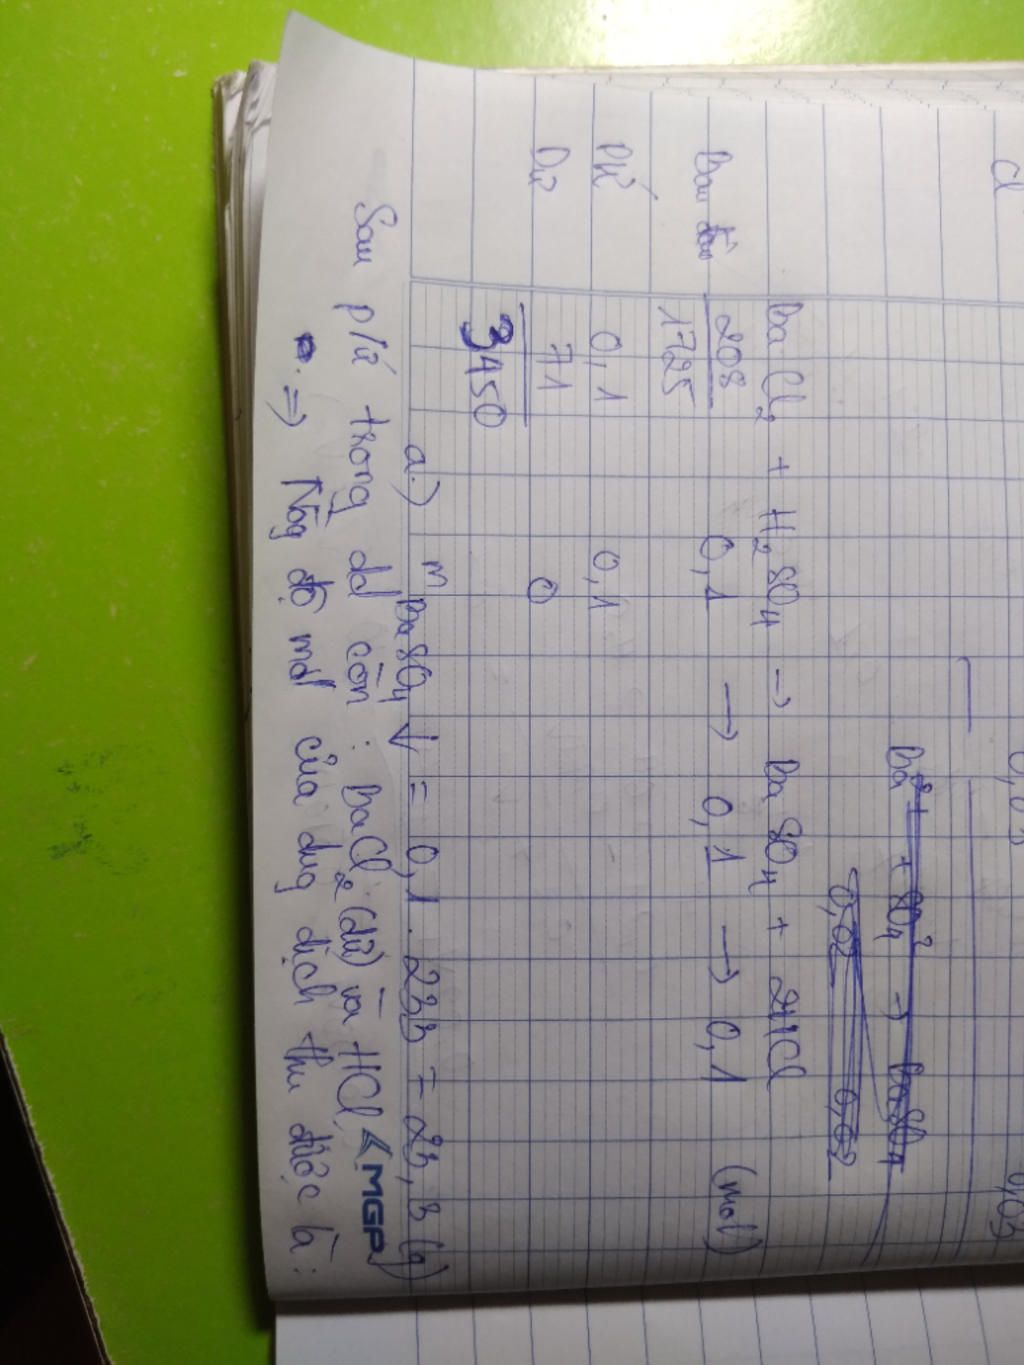 Cl
0,03
Ba²⁺ + SO₄² → BaSO₄
0,02 0,02
BaCl₂ + H₂SO₄ → BaSO₄ + 2HCl
Ban đầu 208/1725 0,1 → 0,1 → 0,1 (mol)
PƯ 0,1 0,1
Dư 71/3450 0
a.) m BaSO₄ ↓ = 0,1 . 233 = 23,3 (g)
Sau pứ trong dd còn : BaCl₂ (dư) và HCl
MGP
⇒ Nồg độ mol của dug dịch thu được là :